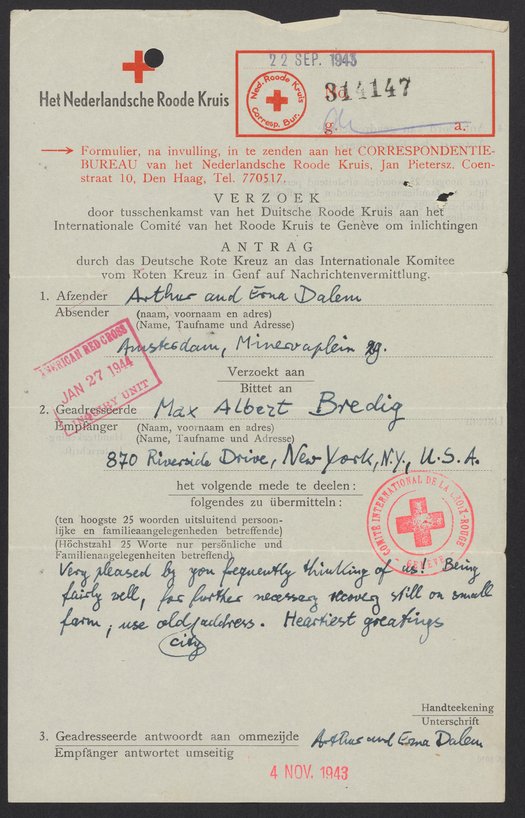 22 SEP. 1943
Het Nederlandsche Roode Kruis
Ned. Roode Kruis
Corresp. Bur.
No 314147
g. a.
Formulier, na invulling, in te zenden aan het CORRESPONDENTIE-
BUREAU van het Nederlandsche Roode Kruis, Jan Pietersz. Coen-
straat 10, Den Haag, Tel. 770517.
VERZOEK
door tusschenkamst van het Duitsche Roode Kruis aan het
Internationale Comité van het Roode Kruis te Genève om inlichtingen
ANTRAG
durch das Deutsche Rote Kreuz an das Internationale Komitee
vom Roten Kreuz in Genf auf Nachrichtenvermittlung.
1. Afzender Arthur and Erna Dalem
Absender (naam, voornaam en adres)
(Name, Taufname und Adresse)
Amsterdam, Minervaplein 29.
AMERICAN RED CROSS
JAN 27 1944
INQUIRY UNIT
Verzoekt aan
Bittet an
2. Geadresseerde Max Albert Bredig
Empfänger (Naam, voornaam en adres)
(Name, Taufname und Adresse)
870 Riverside Drive, New York, N.Y., U.S.A.
het volgende mede te deelen:
folgendes zu übermitteln:
COMITÉ INTERNATIONAL DE LA CROIX-ROUGE
GENÈVE
(ten hoogste 25 woorden uitsluitend persoon-
lijke en familieaangelegenheden betreffende)
(Höchstzahl 25 Worte nur persönliche und
Familienangelegenheiten betreffend)
Very pleased by you frequently thinking of us! Being
fairly well, for further necessary recovery still on small
farm; use old city address. Heartiest greatings
Handteekening
Unterschrift
3. Geadresseerde antwoordt aan ommezijde Arthur and Erna Dalem
Empfänger antwortet umseitig
4 NOV. 1943